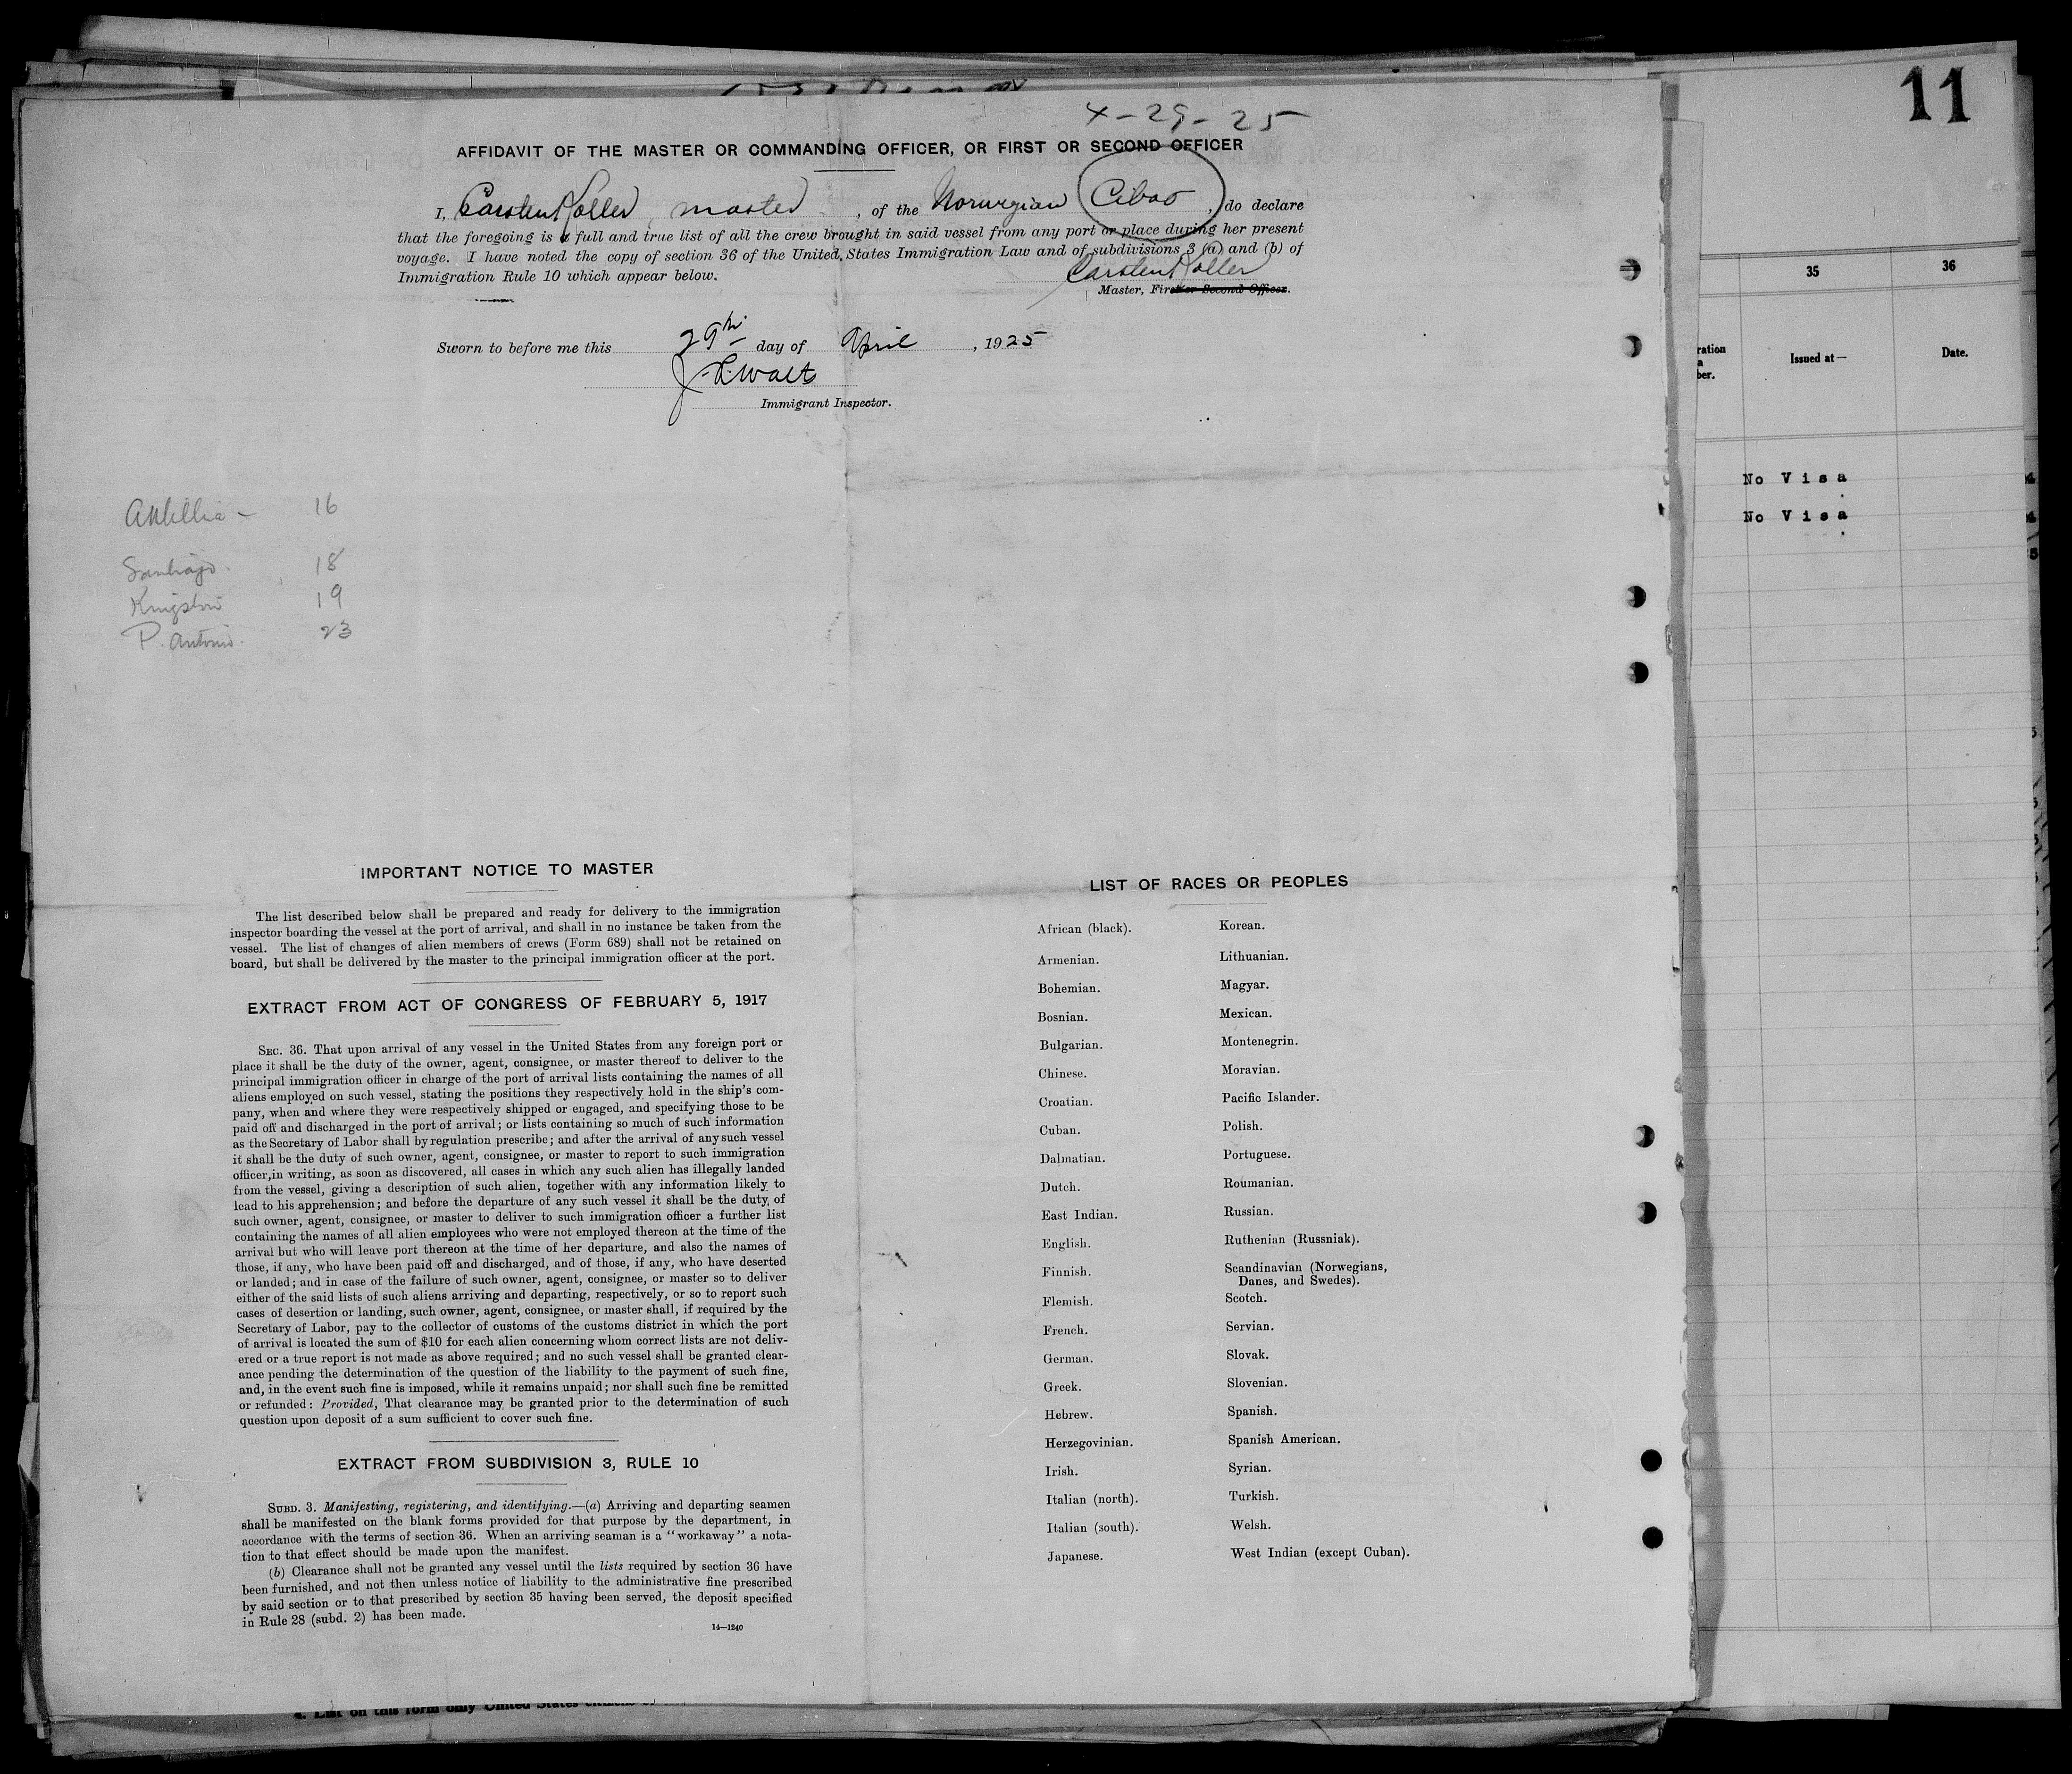 11
4-29-25
AFFIDAVIT OF THE MASTER OR COMMANDING OFFICER, OR FIRST OR SECOND OFFICER
I, Carsten Koller, master, of the Norwegian Cibao, do declare
that the foregoing is a full and true list of all the crew brought in said vessel from any port or place during her present
voyage. I have noted the copy of section 36 of the United States Immigration Law and of subdivisions 3 (a) and (b) of
Immigration Rule 10 which appear below.
Carsten Koller
Master, First or Second Officer.
Sworn to before me this 29th day of April, 1925
Immigrant Inspector.
Antillia - 16
Santiago. 18
Kingston 19
P. Antonio. 23
IMPORTANT NOTICE TO MASTER
The list described below shall be prepared and ready for delivery to the immigration
inspector boarding the vessel at the port of arrival, and shall in no instance be taken from the
vessel. The list of changes of alien members of crews (Form 689) shall not be retained on
board, but shall be delivered by the master to the principal immigration officer at the port.
EXTRACT FROM ACT OF CONGRESS OF FEBRUARY 5, 1917
SEC. 36. That upon arrival of any vessel in the United States from any foreign port or
place it shall be the duty of the owner, agent, consignee, or master thereof to deliver to the
principal immigration officer in charge of the port of arrival lists containing the names of all
aliens employed on such vessel, stating the positions they respectively hold in the ship's com-
pany, when and where they were respectively shipped or engaged, and specifying those to be
paid off and discharged in the port of arrival; or lists containing so much of such information
as the Secretary of Labor shall by regulation prescribe; and after the arrival of any such vessel
it shall be the duty of such owner, agent, consignee, or master to report to such immigration
officer, in writing, as soon as discovered, all cases in which any such alien has illegally landed
from the vessel, giving a description of such alien, together with any information likely to
lead to his apprehension; and before the departure of any such vessel it shall be the duty of
such owner, agent, consignee, or master to deliver to such immigration officer a further list
containing the names of all alien employees who were not employed thereon at the time of the
arrival but who will leave port thereon at the time of her departure, and also the names of
those, if any, who have been paid off and discharged, and of those, if any, who have deserted
or landed; and in case of the failure of such owner, agent, consignee, or master so to deliver
either of the said lists of such aliens arriving and departing, respectively, or so to report such
cases of desertion or landing, such owner, agent, consignee, or master shall, if required by the
Secretary of Labor, pay to the collector of customs of the customs district in which the port
of arrival is located the sum of $10 for each alien concerning whom correct lists are not deliv-
ered or a true report is not made as above required; and no such vessel shall be granted clear-
ance pending the determination of the question of the liability to the payment of such fine,
and, in the event such fine is imposed, while it remains unpaid; nor shall such fine be remitted
or refunded: Provided, That clearance may be granted prior to the determination of such
question upon deposit of a sum sufficient to cover such fine.
EXTRACT FROM SUBDIVISION 3, RULE 10
SUBD. 3. Manifesting, registering, and identifying.—(a) Arriving and departing seamen
shall be manifested on the blank forms provided for that purpose by the department, in
accordance with the terms of section 36. When an arriving seaman is a "workaway" a nota-
tion to that effect should be made upon the manifest.
(b) Clearance shall not be granted any vessel until the lists required by section 36 have
been furnished, and not then unless notice of liability to the administrative fine prescribed
by said section or to that prescribed by section 35 having been served, the deposit specified
in Rule 28 (subd. 2) has been made.
14—1240
LIST OF RACES OR PEOPLES
African (black).
Armenian.
Bohemian.
Bosnian.
Bulgarian.
Chinese.
Croatian.
Cuban.
Dalmatian.
Dutch.
East Indian.
English.
Finnish.
Flemish.
French.
German.
Greek.
Hebrew.
Herzegovinian.
Irish.
Italian (north).
Italian (south).
Japanese.
Korean.
Lithuanian.
Magyar.
Mexican.
Montenegrin.
Moravian.
Pacific Islander.
Polish.
Portuguese.
Roumanian.
Russian.
Ruthenian (Russniak).
Scandinavian (Norwegians,
Danes, and Swedes).
Scotch.
Servian.
Slovak.
Slovenian.
Spanish.
Spanish American.
Syrian.
Turkish.
Welsh.
West Indian (except Cuban).
35 36
Issued at— Date.
No Visa
No Visa
List on this form only United States